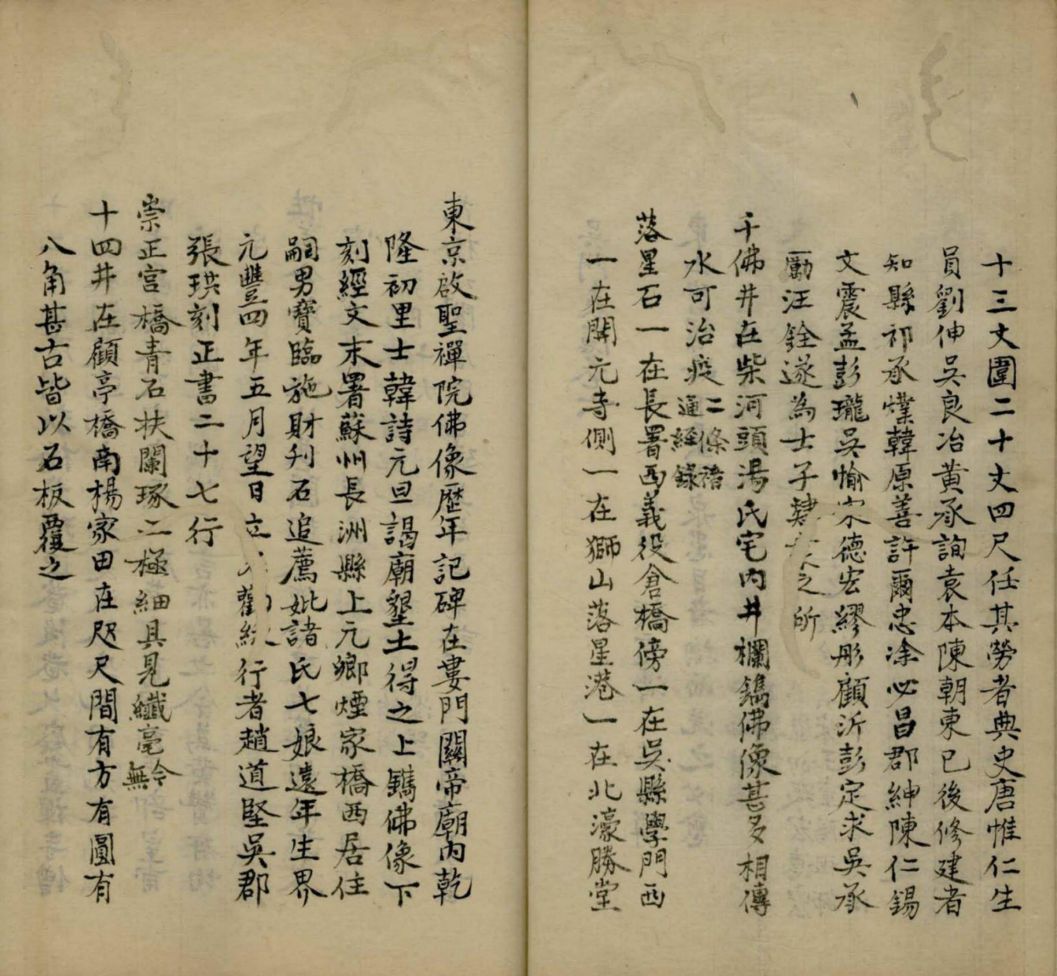 十三丈圍二十丈四尺任其勞者典史唐惟仁生
員劉伸吳良冶黃承詢袁本陳朝東已後修建者
知縣祁承㸁韓原善許爾忠凃必昌郡紳陳仁錫
文震孟彭瓏吳愉宋德宏繆彤顧沂彭定求吳承
勵汪銓遂為士子肄之所
千佛井在柴河頭湯氏宅内井欄鐫佛像甚多相傳
水可治疫二條語
通經錄
落星石一在長署西義役倉橋傍一在吳縣學門西
一在開元寺側一在獅山落星港一在北濠勝堂
東京啟聖禪院佛像歷年記碑在婁門關帝廟内乾
隆初里士韓詩元旦謁廟墾土得之上鐫佛像下
刻經文末署蘇州長洲縣上元鄉煙家橋西居住
嗣男寶臨施財刋石追薦妣諸氏七娘遠年生界
元豐四年五月望日立勸緣行者趙道堅吳郡
張珙刻正書二十七行
崇正宫橋青石扶闌琢二極細具見纖毫今
無
十四井在顧亭橋南楊家田在咫尺間有方有圓有
八角甚古皆以石板覆之